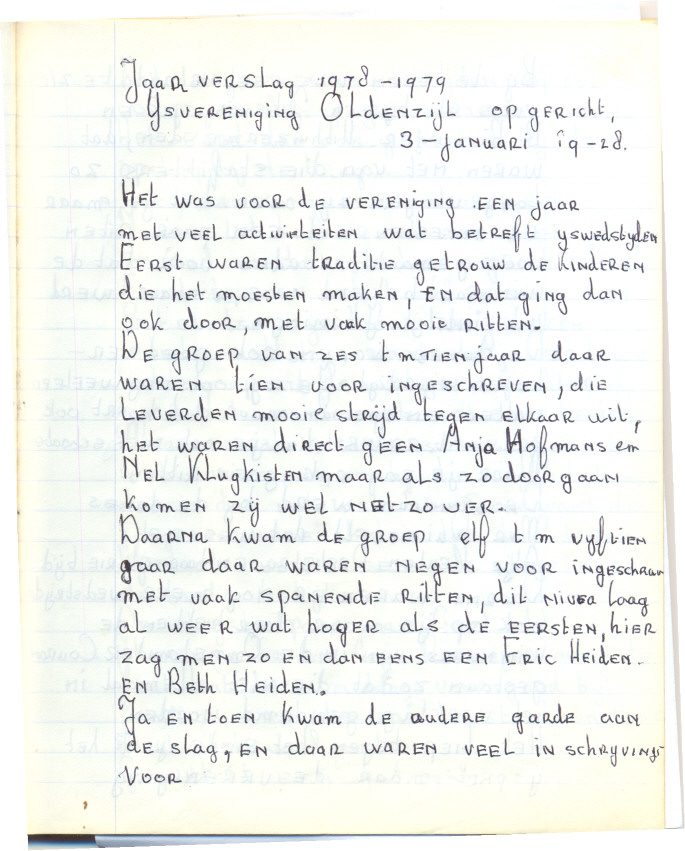 Jaarverslag 1978-1979
Ysvereniging Oldenzijl opgericht,
3-januari 19-28.
Het was voor de vereniging een jaar
met veel activiteiten wat betreft yswedstyden
Eerst waren traditie getrouw de kinderen
die het moesten maken, en dat ging dan
ook door, met vaak mooie ritten.
De groep van zes tm tien jaar daar
waren tien voor ingeschreven, die
leverden mooie strijd tegen elkaar uit,
het waren direct geen Anja Hofmans en
Nel Klugkisten maar als zo doorgaan
komen zij wel net zover.
Daarna kwam de groep elf t m vyftien
jaar daar waren negen voor ingeschreven
met vaak spanende ritten, dit nivea laag
al weer wat hoger als de eersten, hier
zag men zo en dan eens een Eric Heiden.
en Beth Heiden.
Ja en toen kwam de oudere garde aan
de slag, en daar waren veel in schryvings
voor